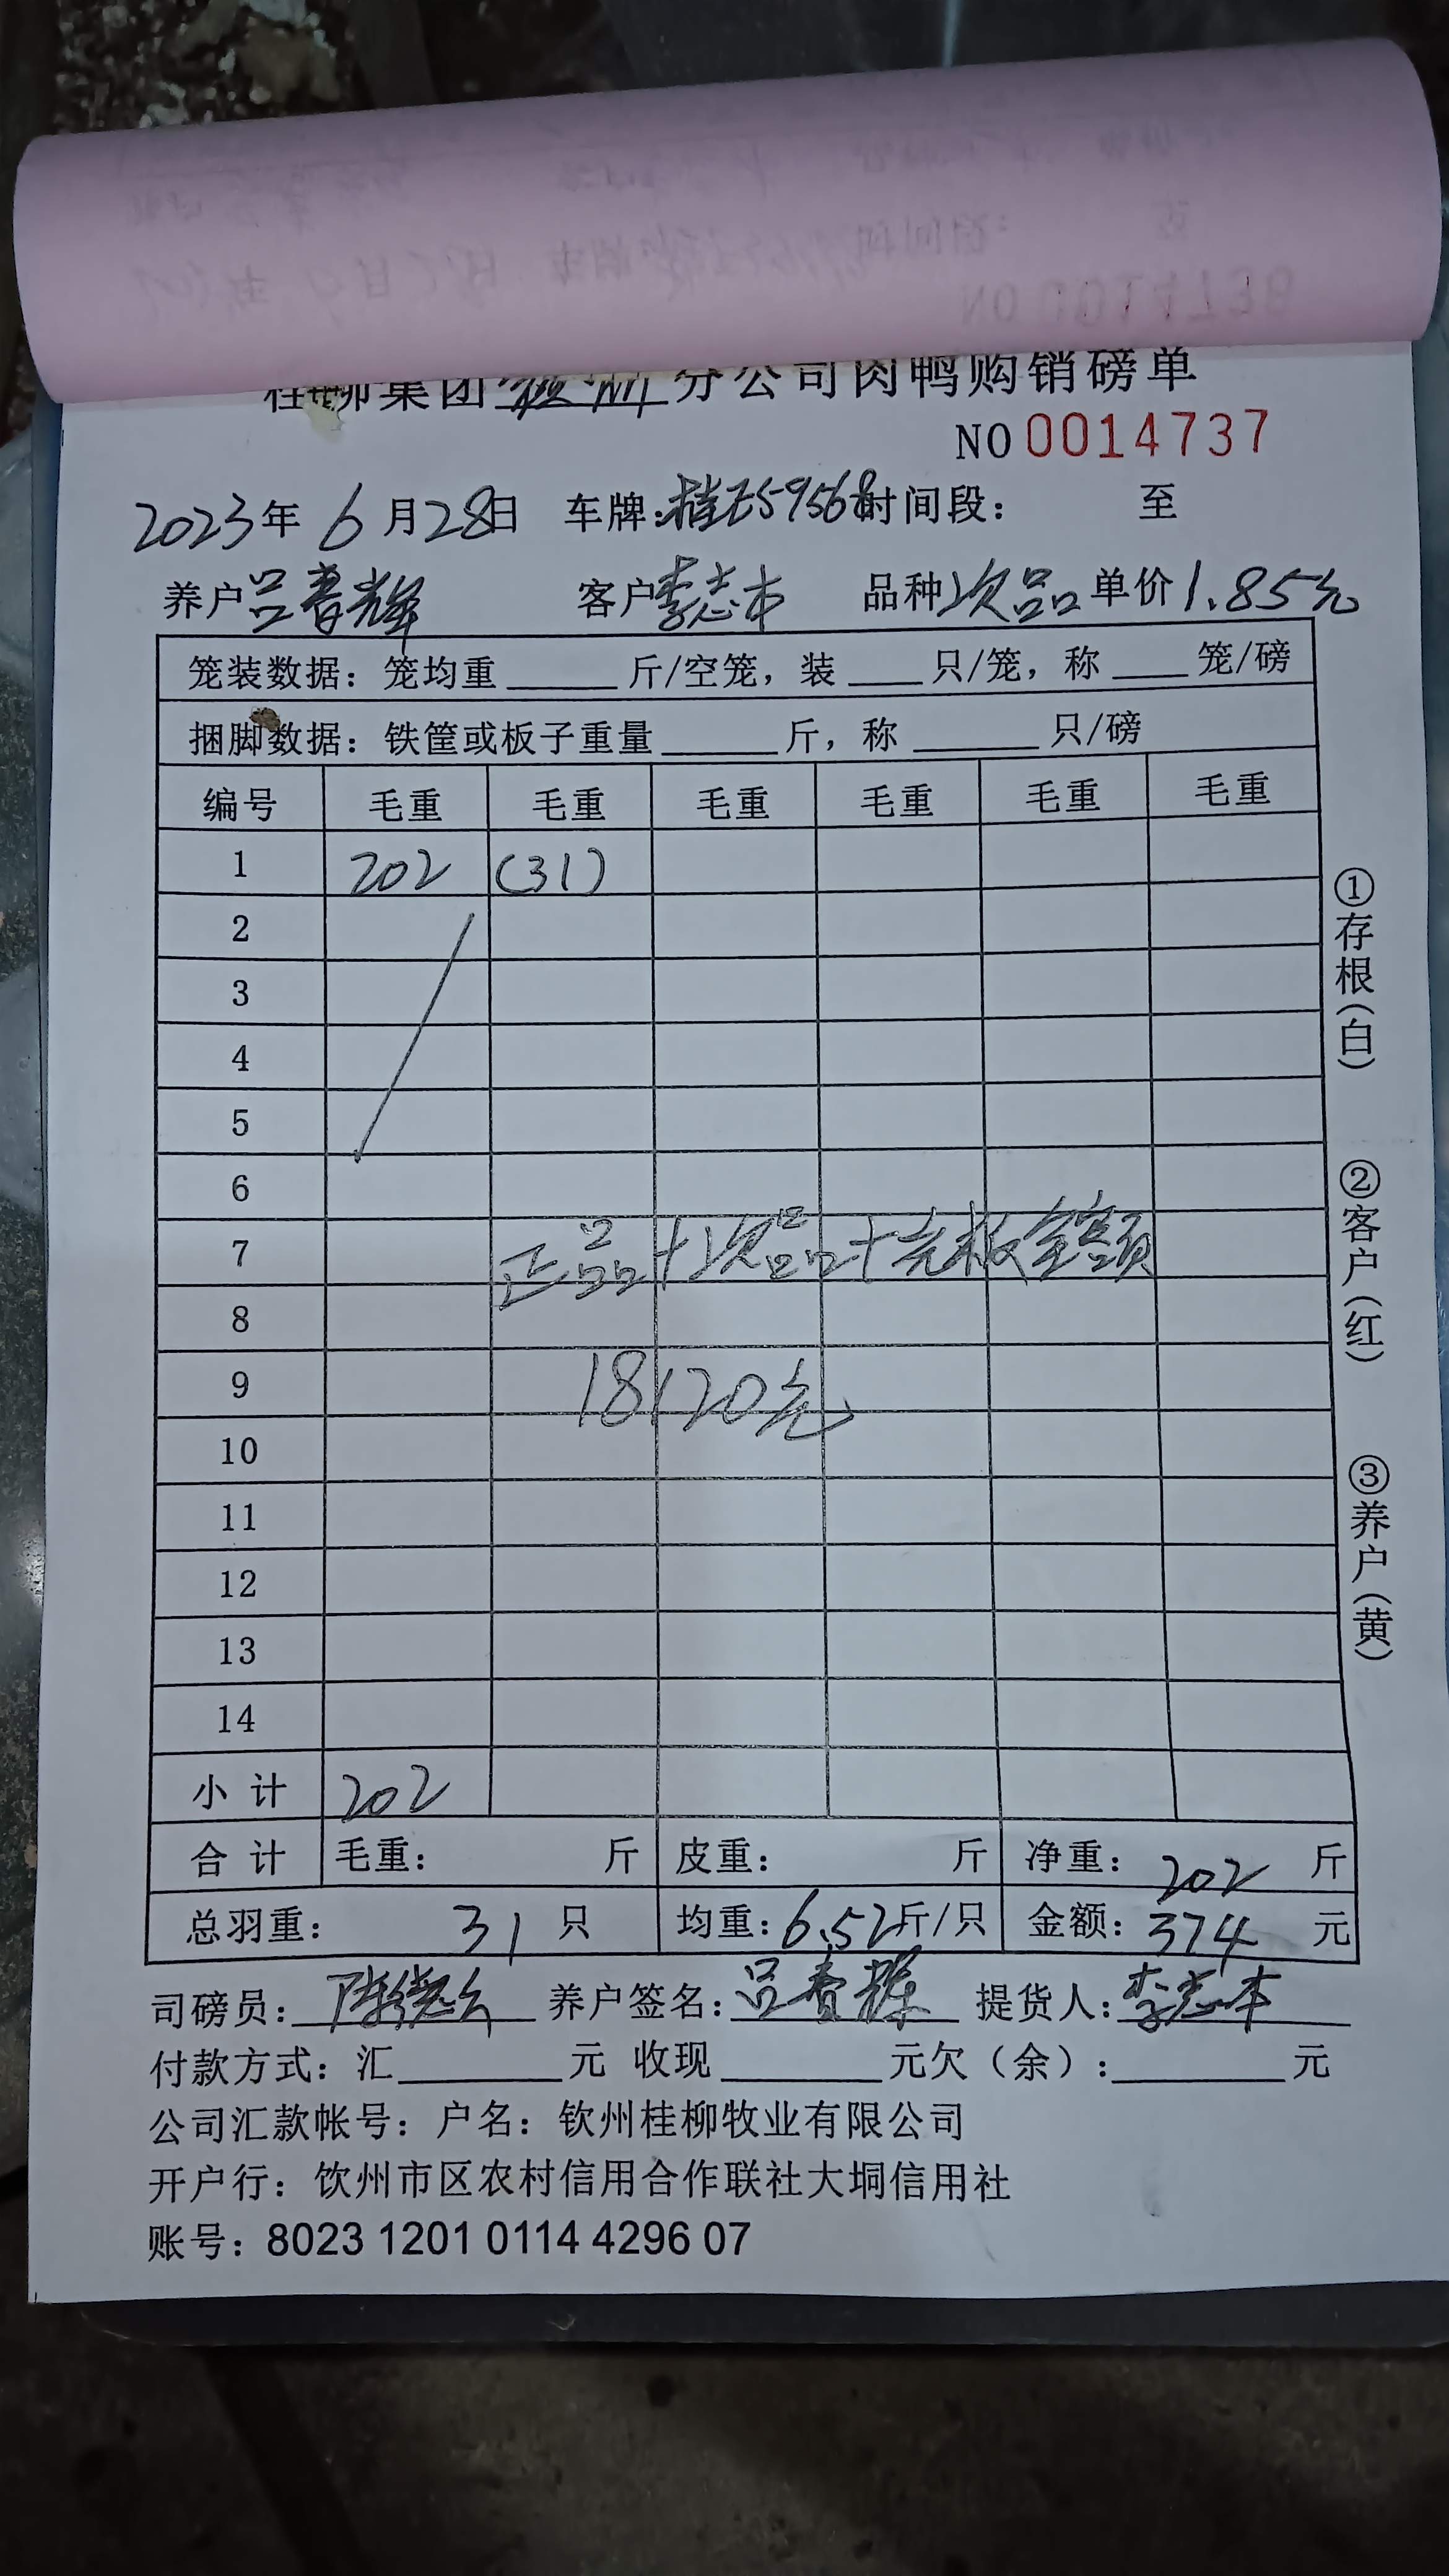 桂柳集团 分公司肉鸭购销磅单
NO 0014737
2023年 6月28日 车牌:桂E59568时间段: 至
养户吕春辉 客户李志本 品种次品 单价1.85元
笼装数据: 笼均重 斤/空笼, 装 只/笼, 称 笼/磅
捆脚数据: 铁筐或板子重量 斤, 称 只/磅
编号 毛重 毛重 毛重 毛重 毛重 毛重
1 202 (31)
2
3
4
5
6
7 正品+次品+光板金额
8
9 18120元
10
11
12
13
14
小计 202
合计 毛重: 斤 皮重: 斤 净重: 202 斤
总羽重: 31 只 均重: 6.52斤/只 金额: 374 元
司磅员: 养户签名: 吕春辉 提货人: 李志本
付款方式: 汇 元 收现 元欠（余）: 元
公司汇款帐号: 户名: 钦州桂柳牧业有限公司
开户行: 饮州市区农村信用合作联社大垌信用社
账号: 8023 1201 0114 4296 07
①存根(白)
②客户(红)
③养户(黄)